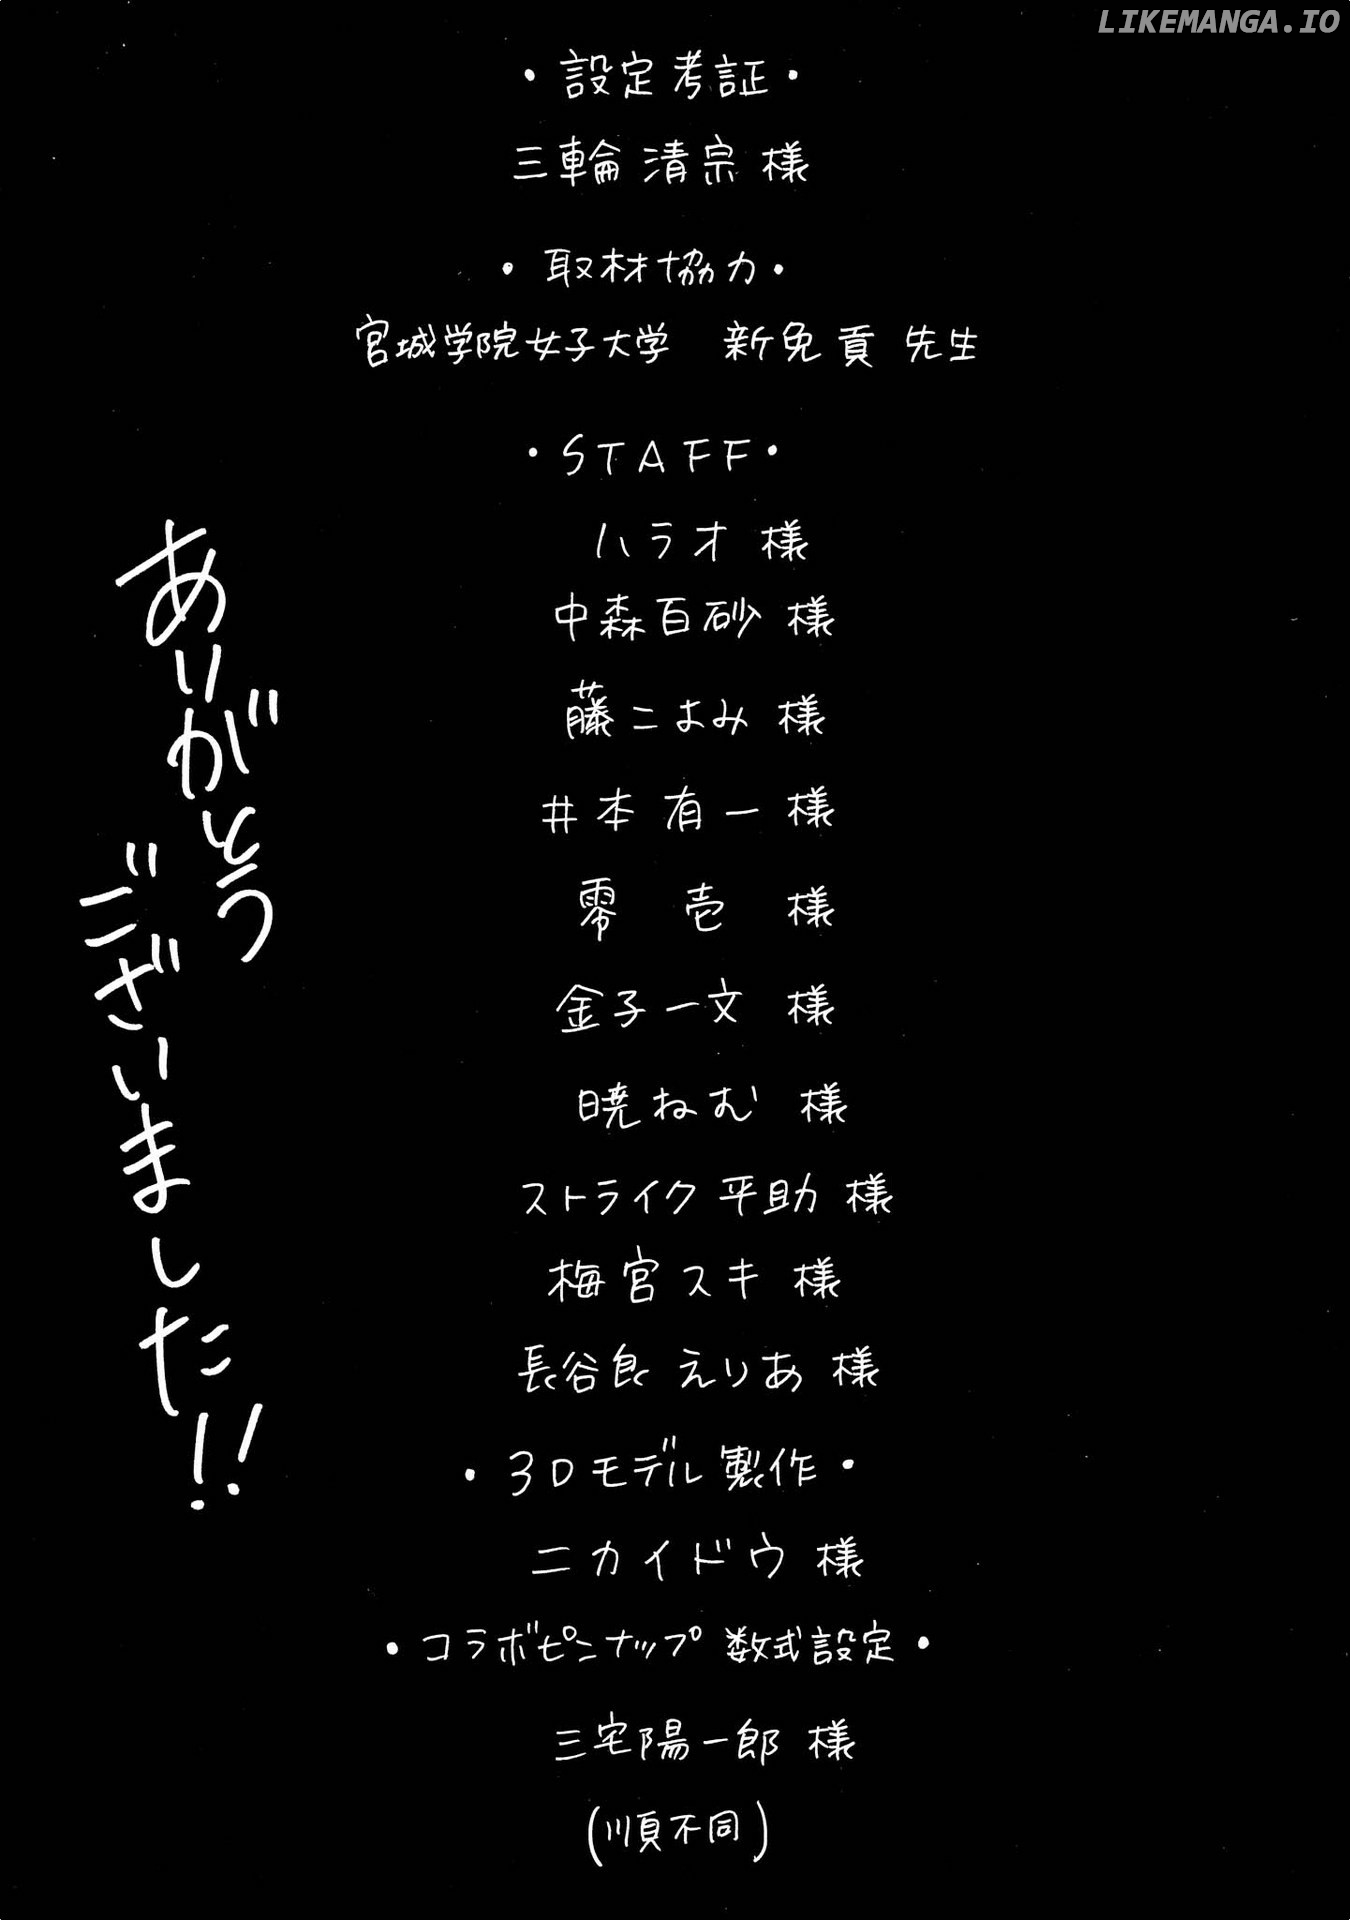 LIKEMANGA.IO
・設定考証・
三輪 清宗 様
・取材協力・
宮城学院女子大学 新免 貢 先生
・STAFF・
ハラオ 様
中森百砂 様
藤こよみ 様
井本有一 様
零 壱 様
金子一文 様
暁ねむ 様
ストライク平助 様
梅宮スキ 様
長谷良えりあ 様
・3Dモデル製作・
ニカイドウ 様
・コラボピンナップ数式設定・
三宅陽一郎 様
(順不同)
ありがとう
ございました!!